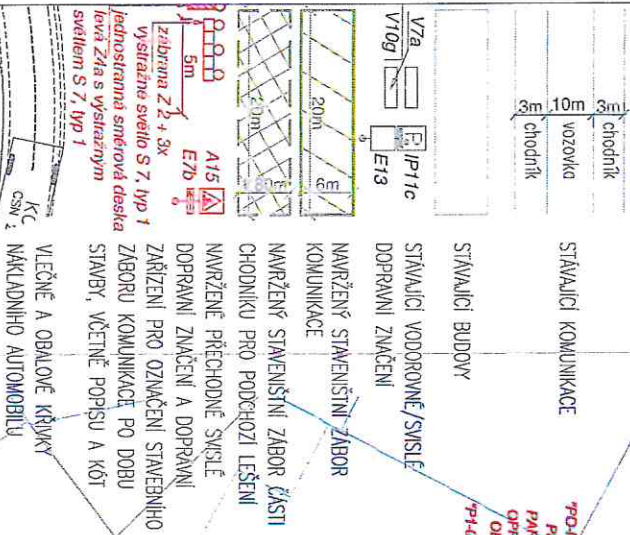 3m
chodník
10m
vozovka
3m
chodník
STÁVAJÍCÍ KOMUNIKACE
STÁVAJÍCÍ BUDOVY
V7a
V10g
IP11c
E13
STÁVAJÍCÍ VODOROVNÉ/SVISLÉ
DOPRAVNÍ ZNAČENÍ
20m
6m
NAVRŽENÝ STAVENIŠTNÍ ZÁBOR
KOMUNIKACE
20m
NAVRŽENÝ STAVENIŠTNÍ ZÁBOR ČÁSTI
CHODNÍKU PRO PODCHOZÍ LEŠENÍ
5m
A15
E7b
zábrana Z 2 + 3x
výstražné světlo S 7, typ 1
jednostranná směrová deska
levá Z4a s výstražným
světlem S 7, typ 1
NAVRŽENÉ PŘECHODNÉ SVISLÉ
DOPRAVNÍ ZNAČENÍ A DOPRAVNÍ
ZAŘÍZENÍ PRO OZNAČENÍ STAVEBNÍHO
ZÁBORU KOMUNIKACE PO DOBU
STAVBY, VČETNĚ POPISU A KÓT
KC
VLEČNÉ A OBALOVÉ KŘIVKY
NÁKLADNÍHO AUTOMOBILU